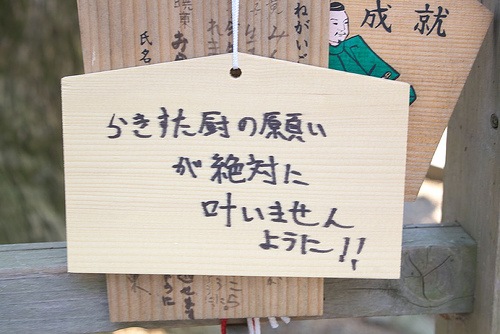 らきすた厨の願い
が絶対に
叶いません
ように!!
成就
ねがいご
氏名